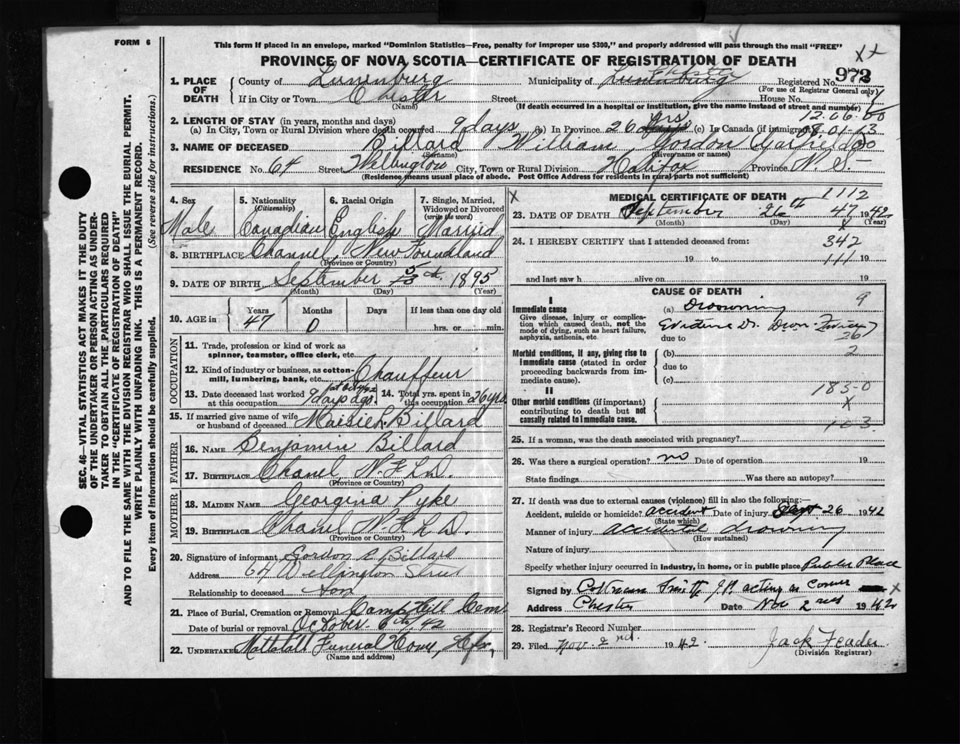 FORM 6
This form if placed in an envelope, marked "Dominion Statistics—Free, penalty for improper use $300," and properly addressed will pass through the mail "FREE"
PROVINCE OF NOVA SCOTIA—CERTIFICATE OF REGISTRATION OF DEATH
1. PLACE OF DEATH County of Lunenburg Municipality of Chester Registered No. 972
(For use of Registrar General only)
If in City or Town Chester Street House No.
(Name) (If death occurred in a hospital or institution, give the name instead of street and number)
12.06.00
2. LENGTH OF STAY (in years, months and days)
(a) In City, Town or Rural Division where death occurred 9 days (b) In Province 26 yrs (c) In Canada (if immigrant)
3. NAME OF DECEASED Billard William Gordon
(Surname) (Given name or names)
RESIDENCE No. 64 Street Wellington City, Town or Rural Division Halifax Province N.S.
(Residence means usual place of abode. Post Office Address for residents in rural parts not sufficient)
4. Sex Male
5. Nationality (Citizenship) Canadian
6. Racial Origin English
7. Single, Married, Widowed or Divorced (write the word) Married
8. BIRTHPLACE Channel, New Foundland
(Province or Country)
9. DATE OF BIRTH September 1895
(Month) (Day) (Year)
10. AGE in Years 47 Months 0 Days If less than one day old hrs. or min.
OCCUPATION
11. Trade, profession or kind of work as spinner, teamster, office clerk, etc.
12. Kind of industry or business, as cotton-mill, lumbering, bank, etc. Chauffeur
13. Date deceased last worked at this occupation 9 days ago
14. Total yrs. spent in this occupation 26 yrs
15. If married give name of wife or husband of deceased Maisie Billard
FATHER
16. NAME Benjamin Billard
17. BIRTHPLACE Chanel, N.F.L.D.
(Province or Country)
MOTHER
18. MAIDEN NAME Georgina Pyke
19. BIRTHPLACE Chanel N.F.L.D.
(Province or Country)
20. Signature of informant Gordon Billard
Address 64 Wellington Street
Relationship to deceased Son
21. Place of Burial, Cremation or Removal Camp Hill Cem
Date of burial or removal October 42
22. UNDERTAKER Mattatall Funeral Home, Hfx,
(Name and address)
MEDICAL CERTIFICATE OF DEATH 1112
23. DATE OF DEATH September 26th 1942
(Month) (Day) (Year)
24. I HEREBY CERTIFY that I attended deceased from: 342
19 to 111 19
and last saw h alive on 19
CAUSE OF DEATH
I
Immediate cause
Give disease, injury or complication which caused death, not the mode of dying, such as heart failure, asphyxia, asthenia, etc.
(a) Drowning 9
due to 26
Morbid conditions, if any, giving rise to immediate cause (stated in order proceeding backwards from immediate cause).
(b) 2
due to
(c)
183-0
II
Other morbid conditions (if important) contributing to death but not causally related to immediate cause.
X
25. If a woman, was the death associated with pregnancy?
26. Was there a surgical operation? no Date of operation 19
State findings Was there an autopsy?
27. If death was due to external causes (violence) fill in also the following:—
Accident, suicide or homicide? accident Date of injury Sept 26 1942
(State which)
Manner of injury accidental drowning
(How sustained)
Nature of injury
Specify whether injury occurred in industry, in home, or in public place Public Place
Signed by Smith J.P. acting as Coroner
Address Chester Date Nov 2nd 1942
28. Registrar's Record Number
29. Filed Nov 2nd. 1942. Jack
(Division Registrar)
SEC. 46—VITAL STATISTICS ACT MAKES IT THE DUTY
OF THE UNDERTAKER OR PERSON ACTING AS UNDER-
TAKER TO OBTAIN ALL THE PARTICULARS REQUIRED
IN THE "CERTIFICATE OF REGISTRATION OF DEATH"
AND TO FILE THE SAME WITH THE DIVISION REGISTRAR WHO SHALL ISSUE THE BURIAL PERMIT.
WRITE PLAINLY WITH UNFADING INK. THIS IS A PERMANENT RECORD.
Every item of information should be carefully supplied. (See reverse side for instructions.)